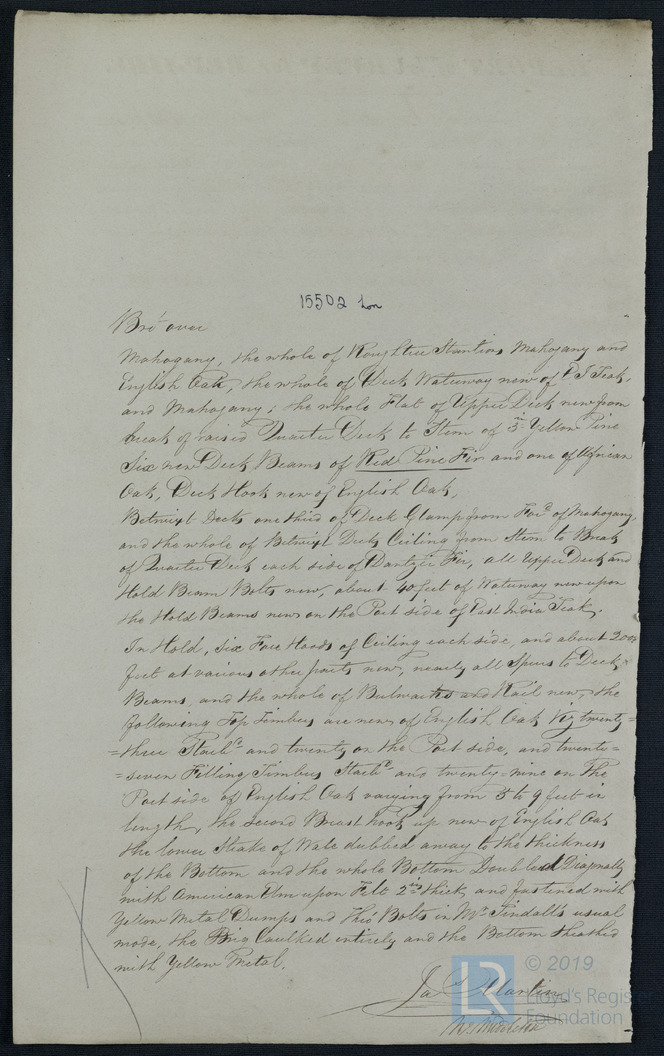 15502 Lon
Bro't over
Mahogany, the whole of Roughtree Stantions Mahogany and
English Oak, the whole of Deck Waterway new of E I Teak,
and Mahogany; the whole Flat of Upper Deck new from
break of raised Quarter Deck to Stem of 3 in Yellow Pine
Six new Deck Beams of Red Pine Fir and one of African
Oak, Deck Hook new of English Oak,
Betwixt Decks one third of Deck Clamp from For'd of Mahogany,
and the whole of Betwixt Decks Ceiling from Stem to Break
of Quarter Deck each side of Dantzic Fir, all Upper Deck and
Hold Beam Bolts new, about 40 feet of Waterway new upon
the Hold Beams new on the Port side of East India Teak,
In Hold, Six Fore Hoods of Ceiling each side, and about 200
feet at various other parts new, nearly all Spurs to Deck
Beams, and the whole of Bulwarks and Rail new, the
following Top Timbers are new of English Oak Viz twenty=
=three Starb'd and twenty on the Port side, and twenty=
=seven Filling Timbers Starb'd and twenty-nine on The
Port side of English Oak varying from 5 to 9 feet in
length, the second Breast hook up new of English Oak
the lower Strake of Wale dubbed away to the thickness
of the Bottom and the whole Bottom Doubled Diagonally
with American Elm upon Felt 2 ins thick and fastened with
Yellow Metal Dumps and thro' Bolts in Mr Tindall's usual
mode, the Brig Caulked entirely and the Bottom Sheathed
with Yellow Metal.
Ja S Martin
© 2019
Lloyd's Register
Foundation